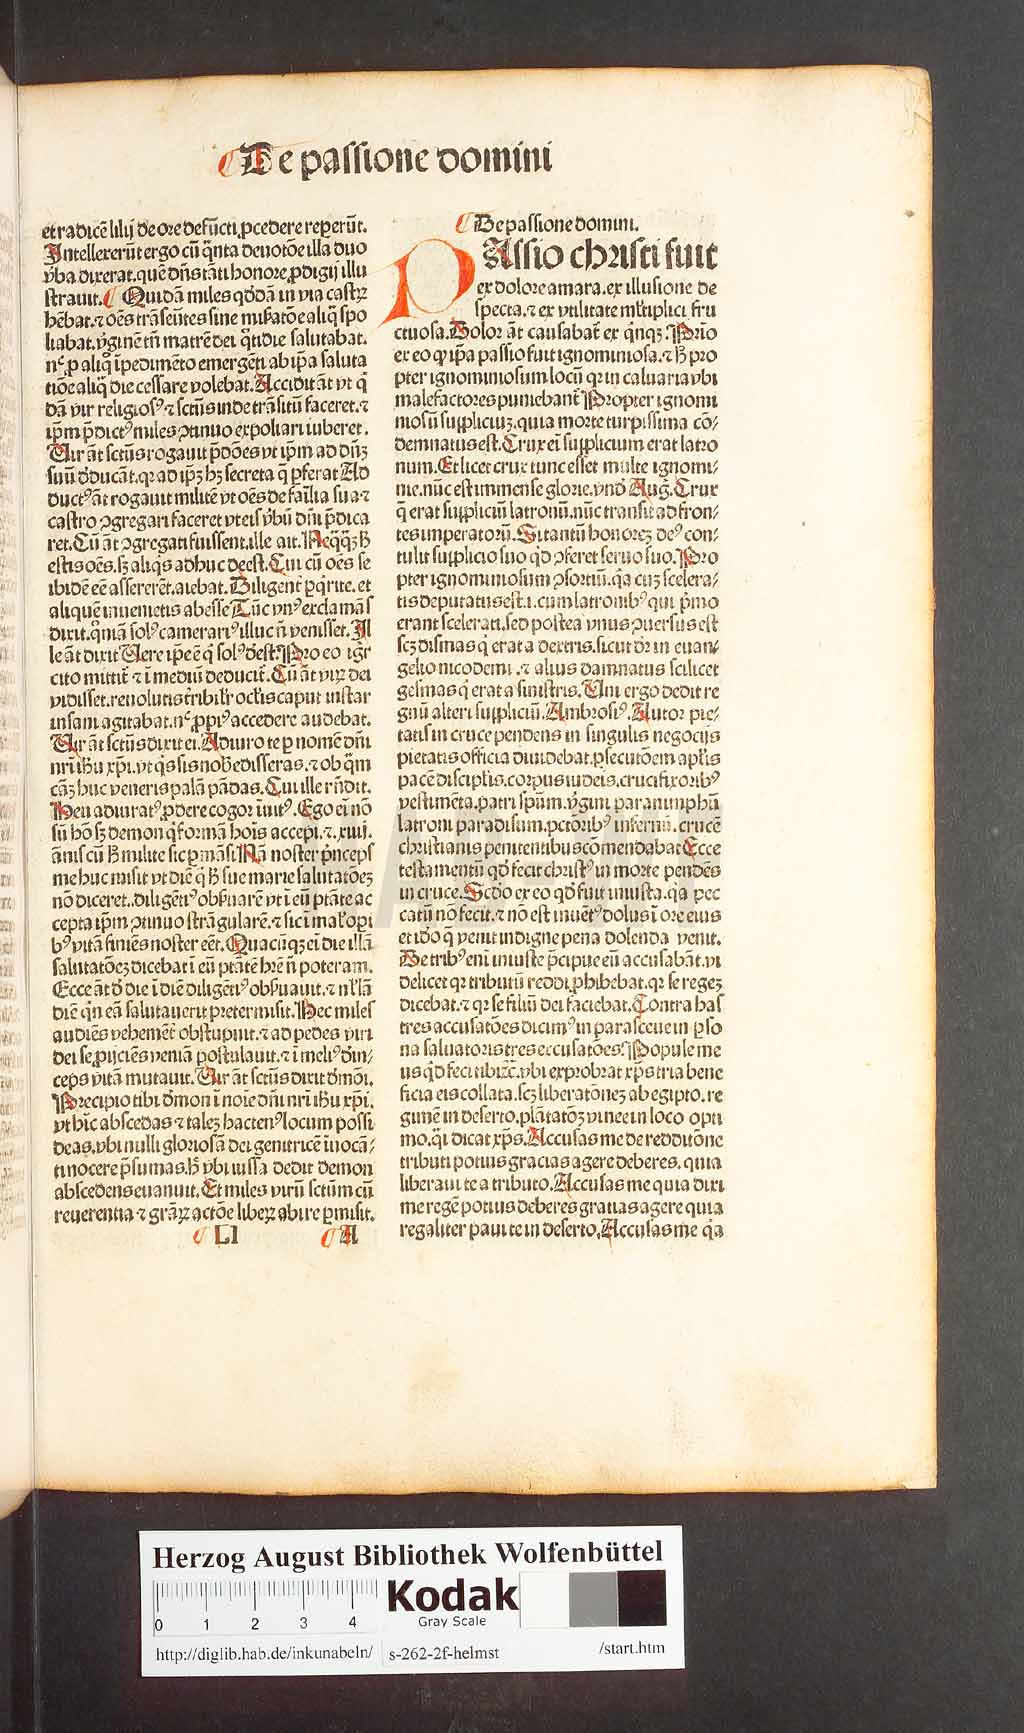 De passione domini
et radicē lilij de ore defūcti ꝓcedere reperūt.
Intellexerūt ergo cū q̄nta deuotōe illa duo
v̄ba dixerat. quē dn̄s tāti honore ꝓdigij illu
strauit. Quidā miles qd̄dā in via castꝝ
hēbat. ⁊ oēs trāseūtes sine miẜatōe aliq̄ spo
liabat. v̓ginē tn̄ matrē dei q̄tidie salutabat.
nec ꝓ aliq̄ īpedimēto emergēti ab ip̄a saluta
tiōe aliq̄ die cessare volebat. Accidit āt vt q̄
dā vir religiosꝰ ⁊ sctūs inde trāsitū faceret. ⁊
ip̄m p̄dictꝰ miles ꝯtinuo expoliari iuberet.
Uir āt sctūs rogauit p̄dōes vt ip̄m ad dn̄ꝫ
suū dd̄ucāt. qꝛ ad ip̄ꝫ hꝫ secreta q̄ ꝓferat Ad
ductꝰ āt rogauit militē vt oēs de familia sua ⁊
castro ꝯgregari faceret vt eis v̓bū dn̄i p̄dica
ret. Cū āt ꝯgregati fuissent. ille ait. Neq̄qꝫ h̄
estis oēs. sꝫ aliqs adhuc deest. Cui cū oēs se
ibidē eē assererēt. aiebat. Diligent̄ ꝑq̄rite. et
aliquē inuenietis abesse Tūc vnꝰ exclamās
dixit. qm̄iā solꝰ camerariꝰ illuc n̄ venisset. Il
le āt dixit Uere ip̄e ē q̄ solꝰ d̄est. Pro eo igr̄
cito mittit̄ ⁊ ī mediū deducit̄. Cū āt viꝝ dei
vidisset. reuolutis t̄ribilr̄ ocl̓is caput instar
insani agitabat. nec ꝓpiꝰ accedere audebat.
Uir āt sctūs dixit ei. Adiuro te ꝑ nomē dn̄i
nr̄i ihū xp̄i. vt q̄s sis nob̓ edisseras. ⁊ ob q̄m
cāꝫ huc veneris palā pādas. Cui ille rn̄dit.
Heu adiuratꝰ ꝓdere cogor īuitꝰ. Ego ei nō
sū hō sꝫ demon q̄ formā hoīs accepi. ⁊. xiiij.
ānis cū h̄ milite sic ꝑmāsi Nā noster p̄nceps
me huc misit vt diē q̄ h̄ sue marie salutatōeꝫ
nō diceret. diligētiꝰ obẜuarē vt ī eū ptāte ac
cepta ip̄m ꝯtinuo strāgularē. ⁊ sic ī mal̓ opi
bꝰ vitā finiēs noster eēt. Quacūqꝫ ei die illā
salutatōeꝫ dicebat ī eū ptātē hr̄e n̄ poteram.
Ecce āt d̄ die ī diē diligētiꝰ obẜuauit. ⁊ nl̓lā
diē q̄n eā salutauerit pretermisit. Hec miles
audiēs vehemēt̓ obstupuit. ⁊ ad pedes viri
dei se ꝓijciēs veniā postulauit. ⁊ ī meliꝰ d̓in⸗
ceps vitā mutauit. Uir āt sctūs dixit d̓mōi.
Precipio tibi d̓mon ī noīe dn̄i nr̄i ihū xp̄i.
vt hīc abscedas ⁊ taleꝫ hactenꝰ locum possi
deas. vbi nulli gloriosā dei genitricē īuocā⸗
ti nocere p̄sumas. h̄ vbi iussa dedit demon
abscedens euanuit. Et miles virū sctūm cū
reuerentia ⁊ grāꝝ actōe libeꝝ abire ꝑmisit.
LI A
De passione domini.
PAssio christi fuit
ex dolore amara. ex illusione de
specta. ⁊ ex vtilitate ml̓tiplici fru
ctuosa. Dolor āt causabat̄ ex q̄nqꝫ. Prīo
ex eo ꝙ ip̄a passio fuit ignominiosa. ⁊ h̄ pro
pter ignominiosum locū qꝛ in caluaria vbi
malefactores puniebant̄ Propter ignomi
niosū suppliciuꝫ. quia morte turpissima cō⸗
demnatus est. Crux ei supplicium erat latro
num. Et licet crux tunc esset multe ignomi⸗
nie. nūc est immense glorie. vnd̓ Aug̓. Crux
q̄ erat suppliciū latronū. nūc transit ad fron⸗
tes imperatorū. Si tantū honoreꝫ deꝰ con⸗
tulit supplicio suo qd̓ ꝯferet seruo suo. Pro
pter ignominiosum ꝯsortiū. q̄a cuꝫ scelera⸗
tis deputatus est. i. cum latronibꝰ qui p̄mo
erant scelerati. sed postea vnus ꝯuersus est
scꝫ dismas q̄ erat a dextris. sicut d̓r in euan⸗
gelio nicodemi. ⁊ alius damnatus scilicet
gesmas q̄ erat a sinistris. Uni ergo dedit re
gnū alteri suppliciū. Ambrosiꝰ. Autor pie⸗
tatis in cruce pendens in singulis negocijs
pietatis officia diuidebat. ꝑsecutōem apl̓is
pacē discipl̓is. corpus iudeis. crucifixoribꝰ
vestimēta. patri spūm. v̓gini paranimphū
latroni paradisum. pctōribꝰ infernū. crucē
christianis penitentibus cōmendabat Ecce
testamentū qd̓ fecit christꝰ in morte pendēs
in cruce. Scd̓o ex eo qd̓ fuit iniusta. q̄a pec
catū nō fecit. ⁊ nō est inuētꝰ dolus ī ore eius
et id̓o q̄ venit indigne pena dolenda venit.
De tribꝰ eni iniuste p̄cipue eū accusabāt. vi
delicet qꝛ tributū reddi ꝓhibebat. qꝛ se regeꝫ
dicebat. ⁊ qꝛ se filiū dei faciebat. Contra has
tres accusatōes dicimꝰ in parasceue in ꝑso
na saluatoris tres excusatōes. Popule me
us qd̓ feci tibi ⁊c̄. vbi exprobrat xp̄s tria bene
ficia eis collata. scꝫ liberatōneꝫ ab egipto. re
gimē in deserto. plātatōꝫ vinee in loco opti
mo. q̄i dicat xp̄s. Accusas me de redditōne
tributi potius gracias agere deberes. quia
liberaui te a tributo. Accusas me quia dixi
me regē potius deberes gratias agere quia
regaliter paui te in deserto. Accusas me q̄a
Herzog August Bibliothek Wolfenbüttel
0 1 2 3 4
Kodak
Gray Scale
http://diglib.hab.de/inkunabeln/ s-262-2f-helmst /start.htm